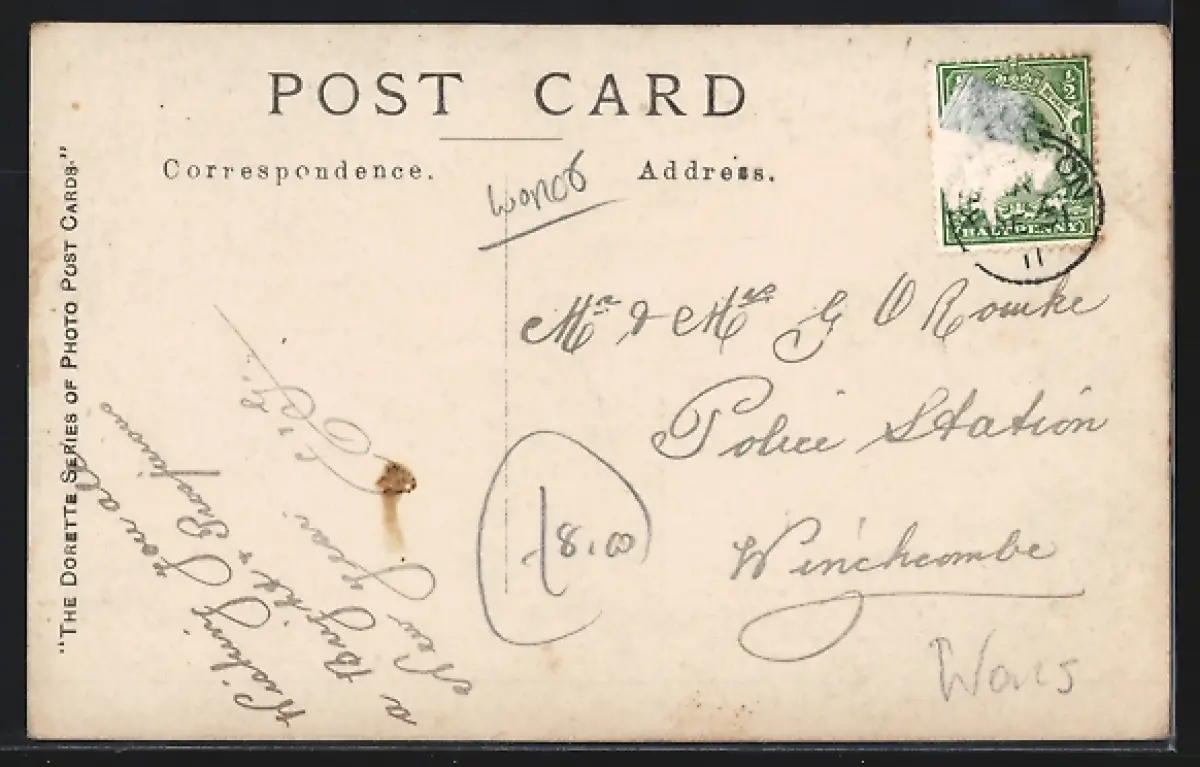 POST CARD
Correspondence.
Address.
"THE DORETTE SERIES OF PHOTO POST CARDS."
Wishing you all
a Bright & Prosperous
New Year
Mr & Mrs G O Rourke
Police Station
Winchcombe
½
HALFPENNY
ON
11
8.00
Wars